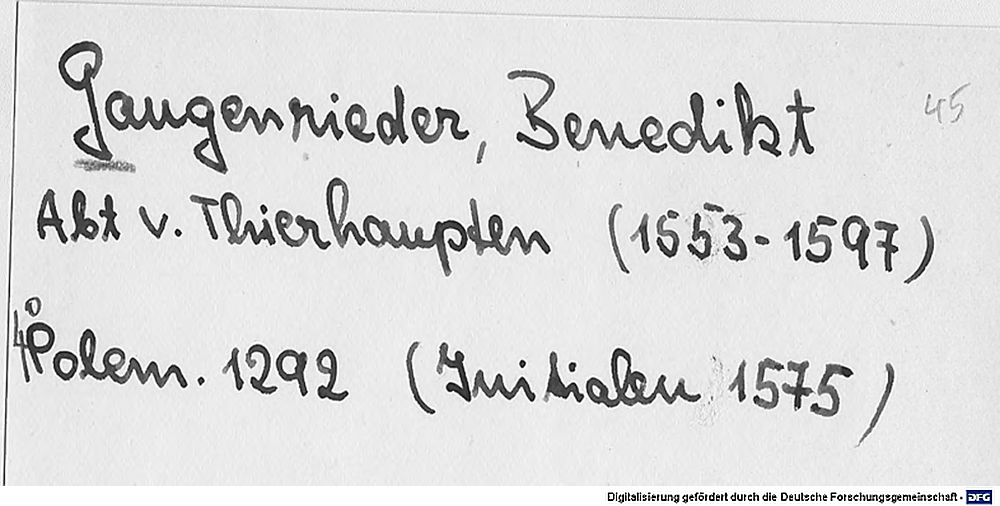 Gaugenrieder, Benedikt
45
Abt v. Thierhaupten (1553-1597)
4° Polem. 1292 (Initialen 1575)
Digitalisierung gefördert durch die Deutsche Forschungsgemeinschaft - DFG